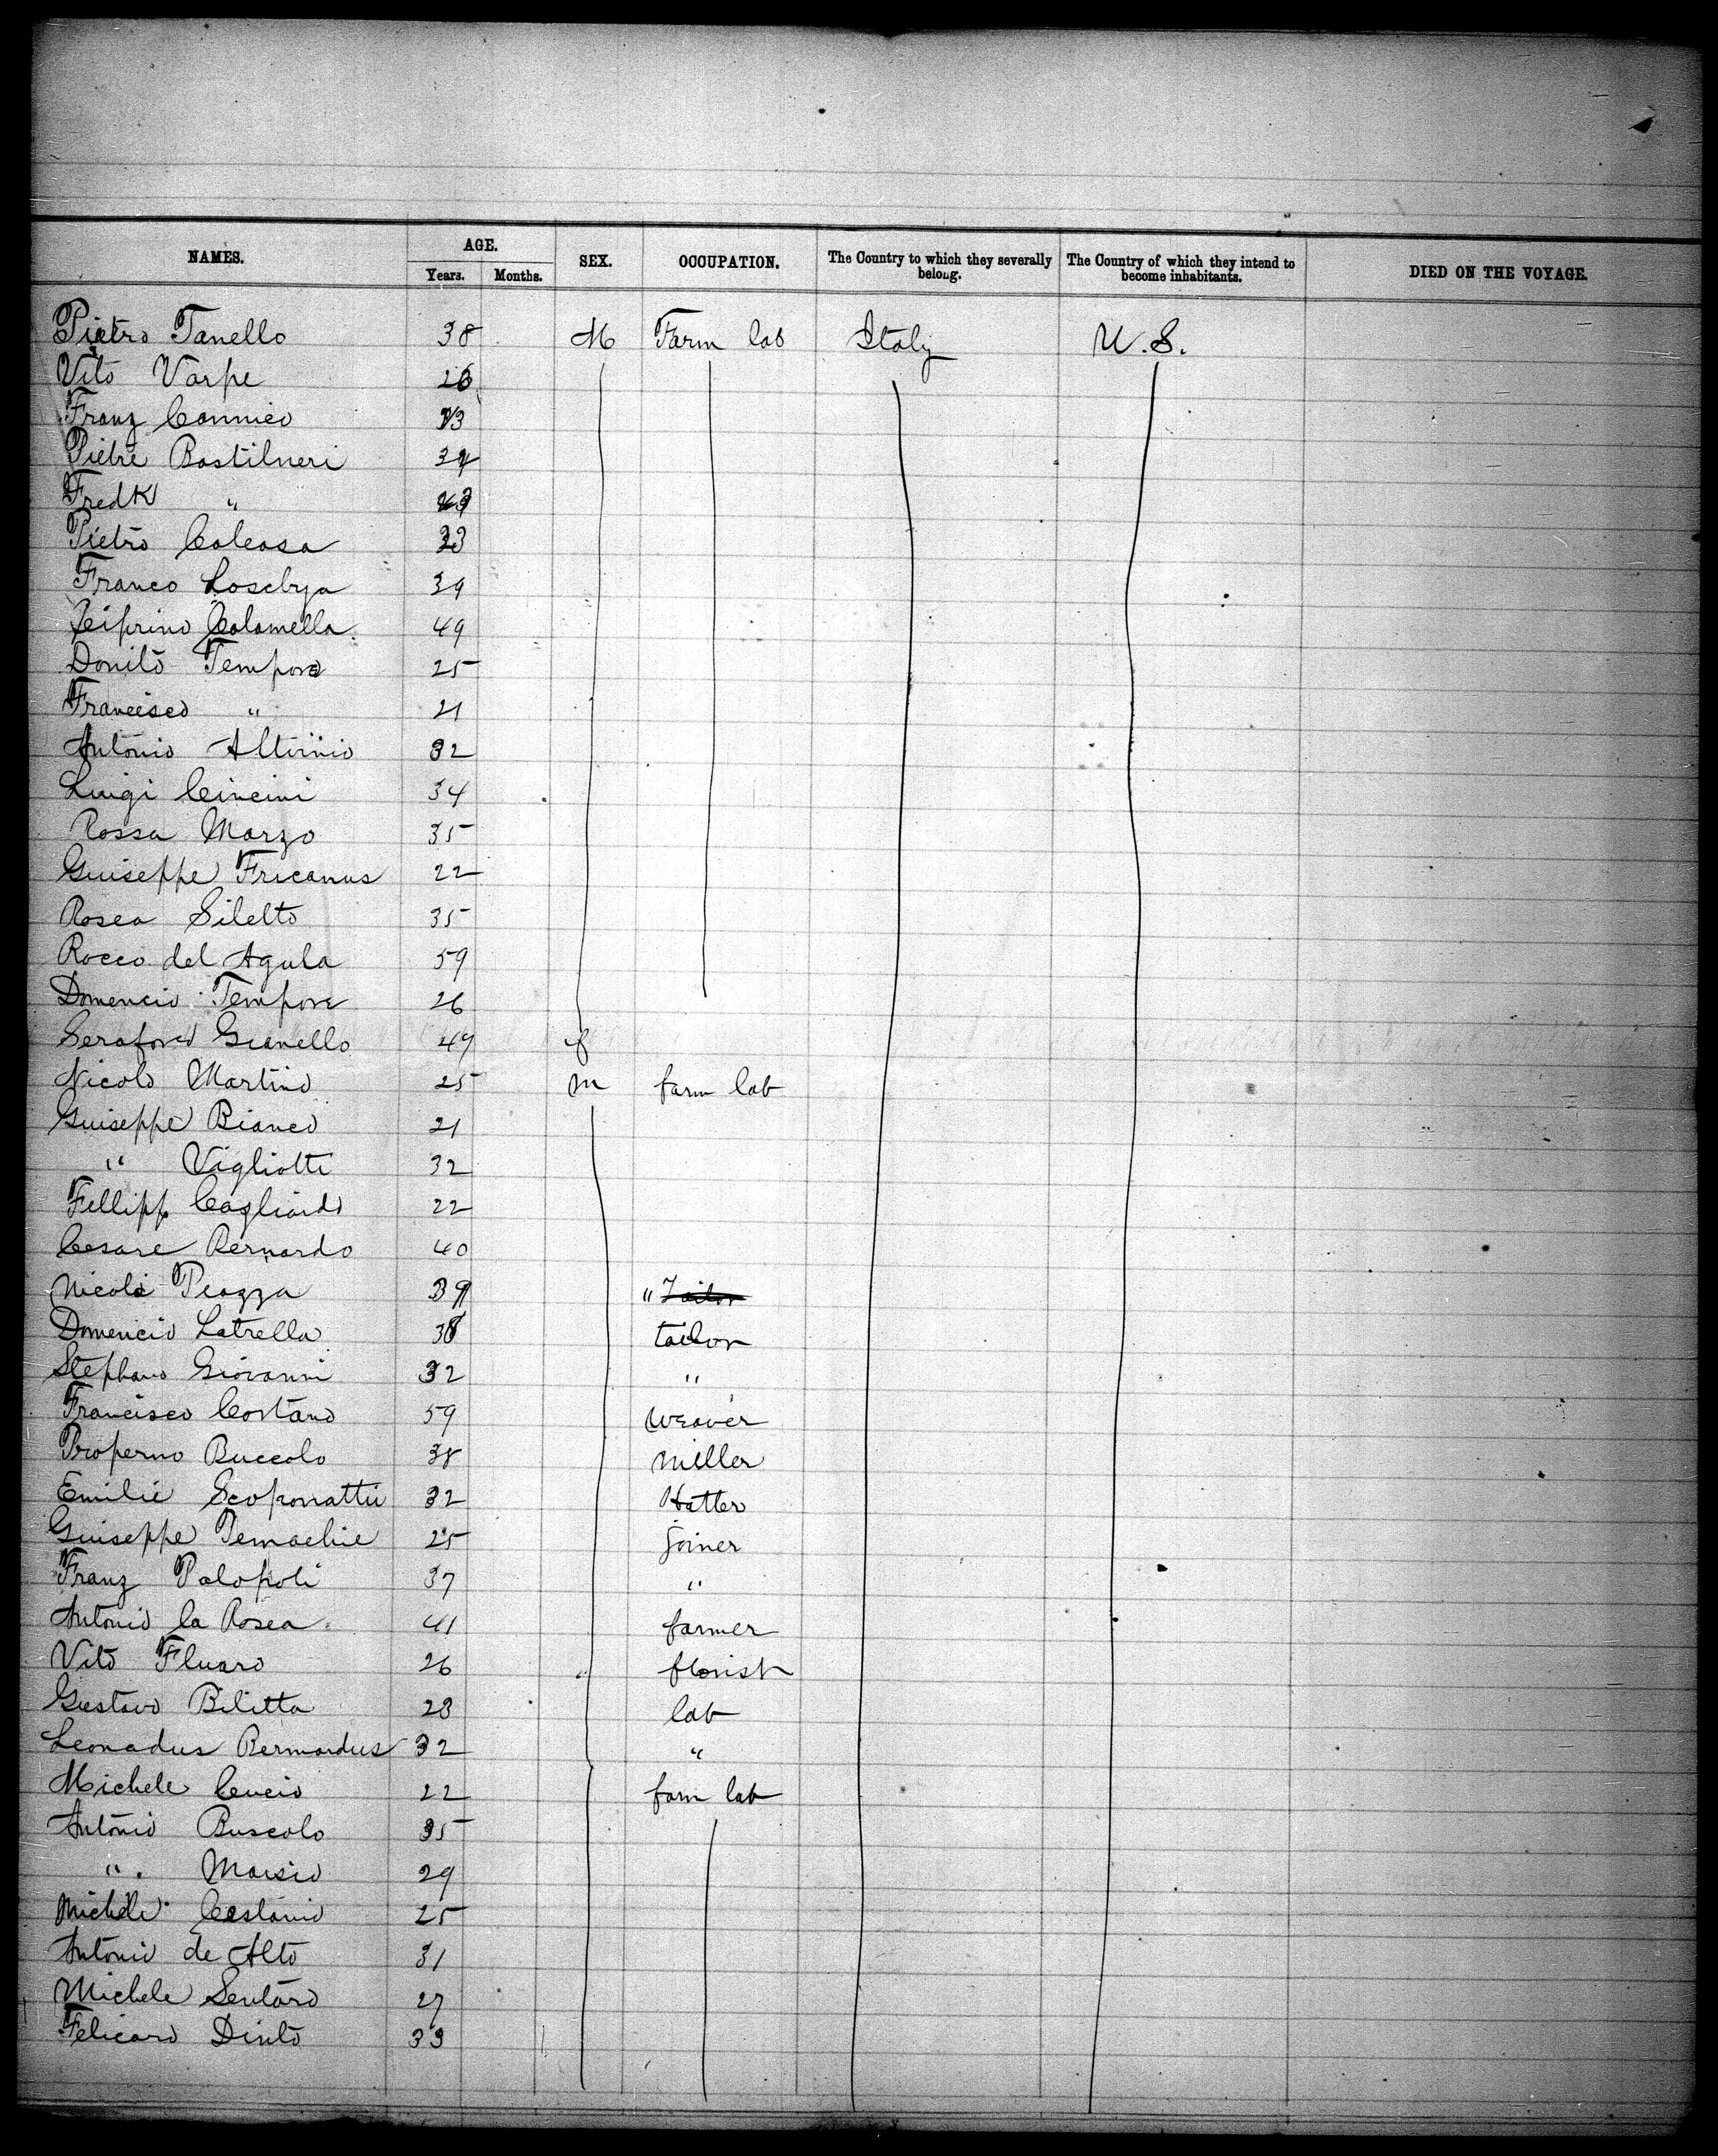 NAMES. AGE. SEX. OCCUPATION. The Country to which they severally belong. The Country of which they intend to become inhabitants. DIED ON THE VOYAGE.
Years. Months.
Pietro Tanello 38 M Farm lab Italy U.S.
Vito Varpe 26
Franz Connico
Pietre Bastilneri 34
Fredk "
Pietro Calcosa 33
Franco Loscbya 39
Ciprino Colomella 49
Donito Tempore 25
Francisco " 21
Antonio Altirinio 32
Luigi Cincini 34
Rossa Marzo 35
Guiseppe Fricanus 22
Rosea Siletto 35
Rocco del Agula 59
Domencio Tempore 26
Gianello 49 f
Nicolo Martino 25 m farm lab
Guiseppe Bianco 21
" Vigliotti 32
Fillipp Cagliardo 22
Cesare Bernardo 40
Nicola Piazza 39 " Tailor
Domencio Latrella 38 tailor
Stephano Giovanni 32 "
Francisco Costano 59 weaver
Properno Buccolo 38 Miller
Emilie Scoponattii 32 Hatter
Guiseppe Pemachie 25 joiner
Franz Palopoli 37 "
Antonio la Rosea 41 farmer
Vito Fluaro 26 florist
Gustavo Bilitta 23 lab
Leonadus Bermardus 32 "
Michele Cucio 22 farm lab
Antonio Buscolo 35
" Maisio 29
Michele Castanio 25
Antonio de Alto 31
Michele Sentaro 27
Felicaro Dinto 33